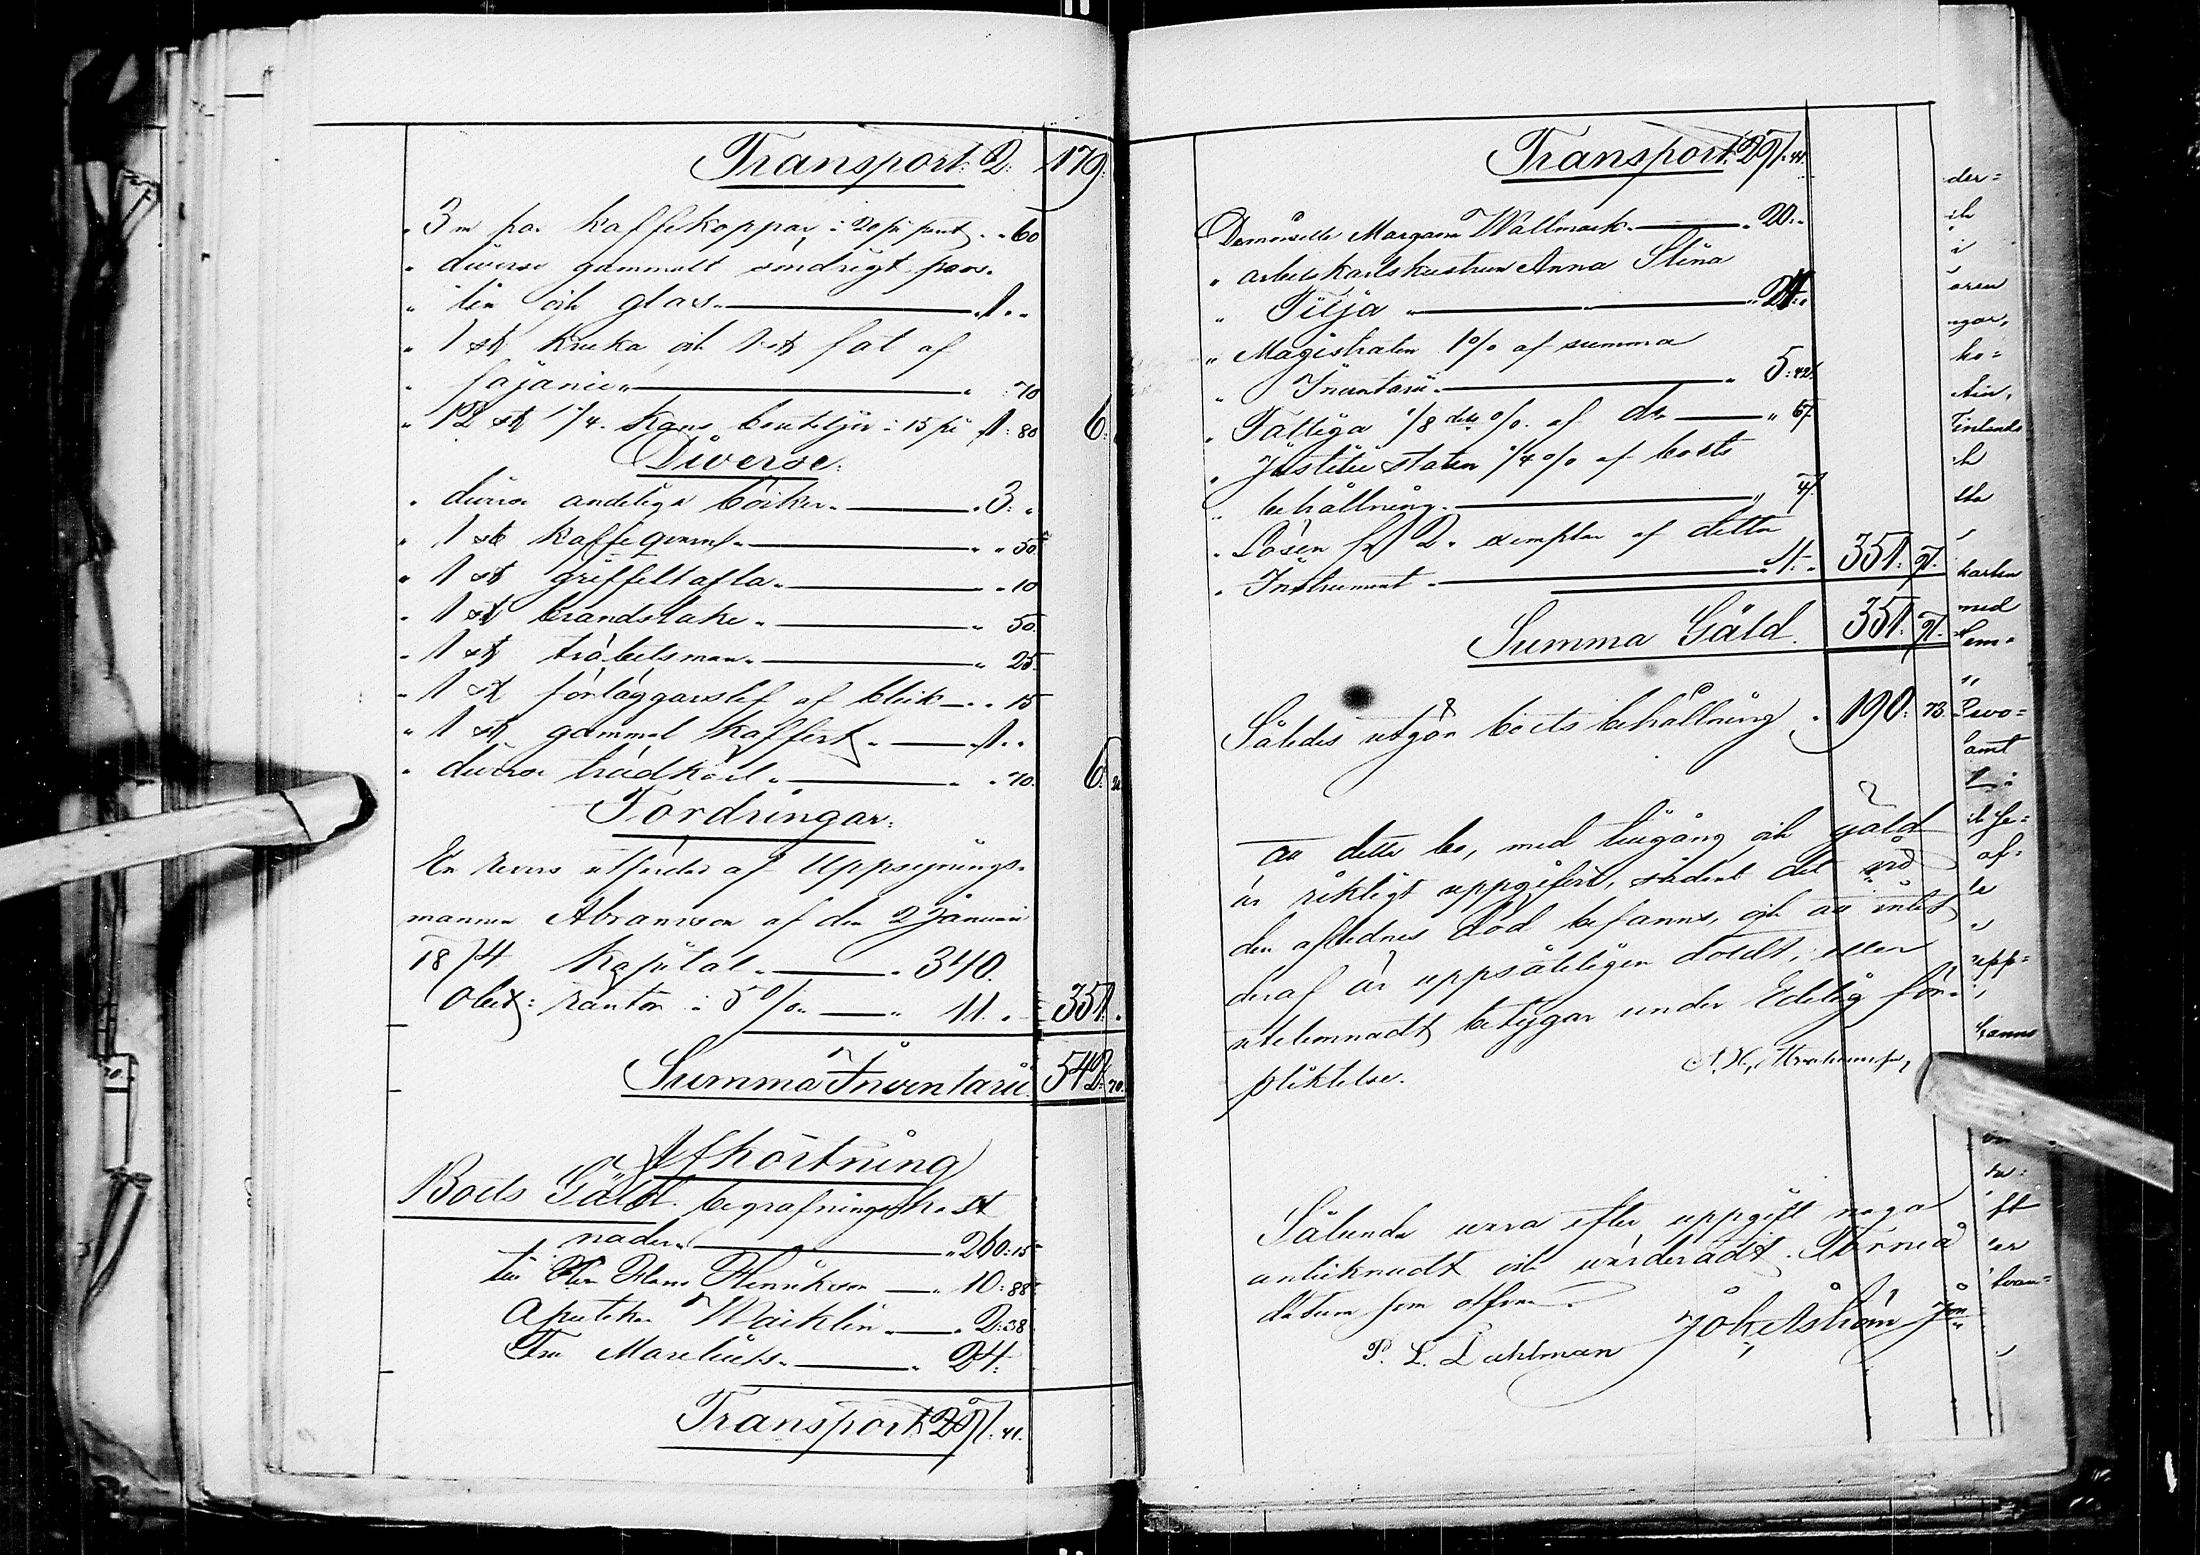 Transport. 2: 179:
" 3 ne par kaffekoppar: 20 pi paret " " 60
" diverse gammalt sendrigt pors-
" lin och glas " 1. "
" 1 st kruka och 1 st fat af
" fajance " " : 70
" 12 st 1/4 kans bouteljer : 15 pi 1: 80 6:
Diverse:
" diverse andeliga böcker. " 3: "
" 1 st kaffeqvarn " " " 50.
" 1 st griffeltafla. " " 10
" 1 st brandstake " " 50.
" 1 st träbetsman " " 25.
" 1 st förläggarslef af bleck " " 15
" 1 st gammal koffert " 1. "
" diverse trädkärl " " " 70. 6:
Fordringar:
En revers utfärdad af Uppsynings-
mannen Abramson af den 2 Januari
1874 Kapital " 340.
Obet: räntor : 5 % " 11. " 351. "
Summa Inventarii 542: 70.
Afkortning
Boets Gäld. begrafningskost
nader " 260: 15
till Hen Hans Henrikson " 10: 88
Apoteka Waiklin " 2: 38
Fru Marelius " 24:
Transport. 297: 41.
Transport. 297. 41.
Demoiselle Margareta Wallmark. " 20. "
" arbetskarlshustrun Anna Stina
" Tilja " " 24. "
" Magistraten 1% af summa
" Inventarii " 5: 42.
" Fattiga 1/8 dels %. af do " 67
" Justitiæ staten 1/4 % af boets
" behållning. " 47.
" Lösen för 2. exemplar af detta
" Instrument " " 1: " 351: 97.
Summa Gäld. 351: 97.
Således utgör boets behållning " 190: 73.
At detta bo, med tilgång och gäld
är riktigt uppgifvit, sådant det vid
den aflednes död befanns, och at intet
deraf är uppsåteligen doldt, eller
utelemnadt betygar under Edelig för-
pliktelse.
Sålunda vara efter uppgift noga
antecknadt och värderadt. Torneå
datum som ofvan.
P. L. Dahlman Joh Åström
der=
ch
i
aren
ngar,
ko=
Finlands
karlen
med
2 wo=
samt
af=
upp=
hanns